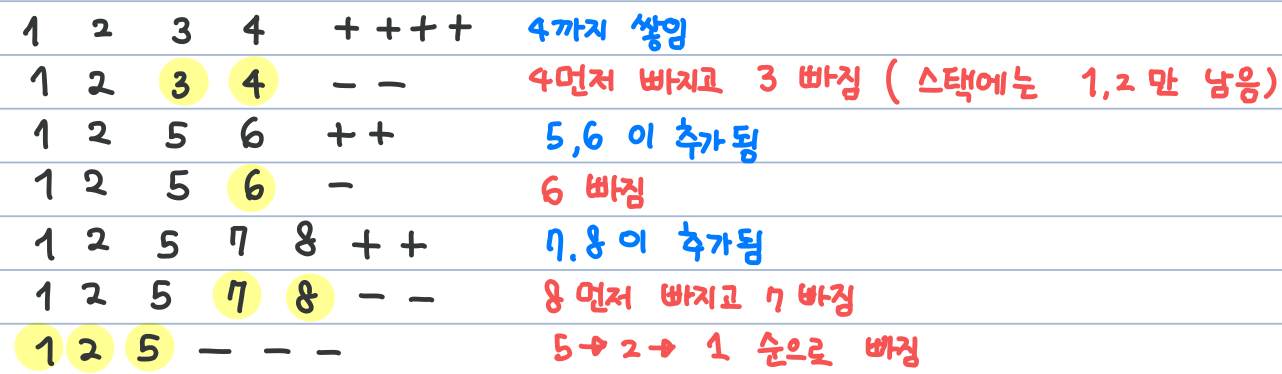 1 2 3 4 ++++ 4까지 쌓임
1 2 3 4 -- 4먼저 빠지고 3 빠짐 ( 스택에는 1,2 만 남음)
1 2 5 6 ++ 5,6 이 추가됨
1 2 5 6 - 6 빠짐
1 2 5 7 8 ++ 7.8이 추가됨
1 2 5 7 8 -- 8먼저 빠지고 7 빠짐
1 2 5 --- 5→2→ 1 순으로 빠짐